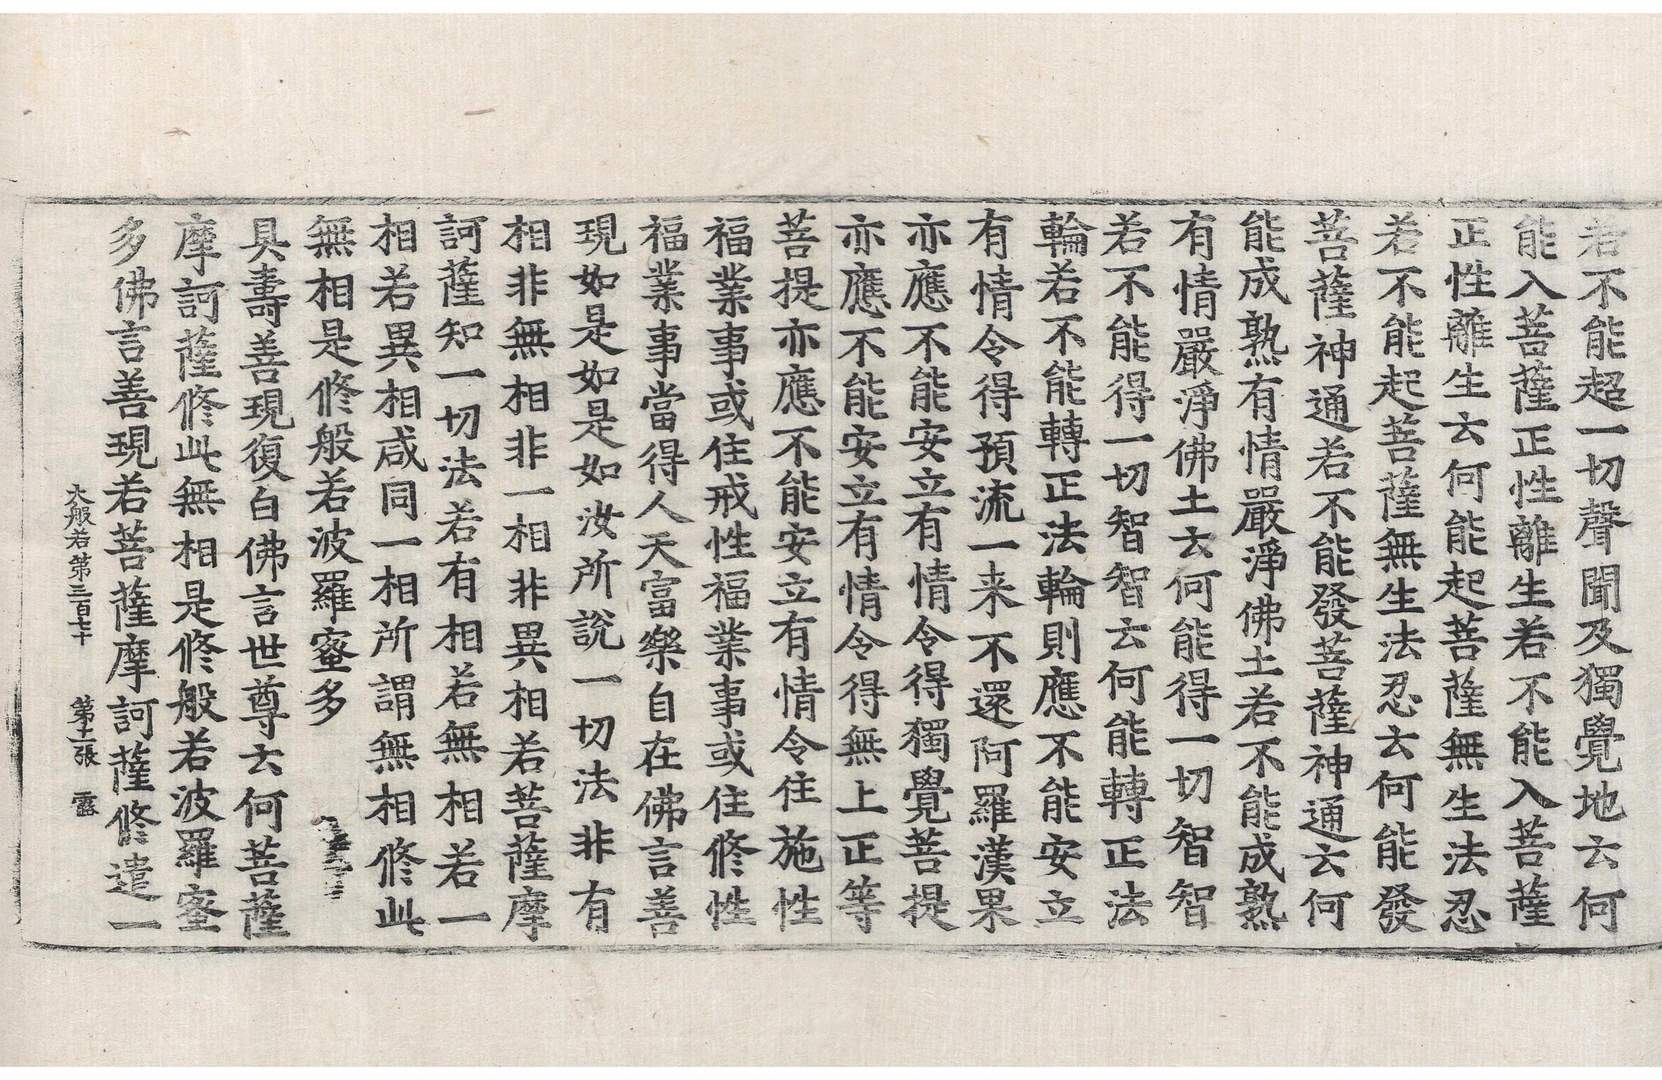 若不能超一切聲聞及獨覺地云何
能入菩薩正性離生若不能入菩薩
正性離生云何能起菩薩無生法忍
若不能起菩薩無生法忍云何能發
菩薩神通若不能發菩薩神通云何
能成熟有情嚴淨佛土若不能成熟
有情嚴淨佛土云何能得一切智智
若不能得一切智智云何能轉正法
輪若不能轉正法輪則應不能安立
有情令得預流一来不還阿羅漢果
亦應不能安立有情令得獨覺菩提
亦應不能安立有情令得無上正等
菩提亦應不能安立有情令住施性
福業事或住戒性福業事或住修性
福業事當得人天富樂自在佛言善
現如是如是如汝所說一切法非有
相非無相非一相非異相若菩薩摩
訶薩知一切法若有相若無相若一
相若異相咸同一相所謂無相修此
無相是修般若波羅蜜多
具壽善現復白佛言世尊云何菩薩
摩訶薩修此無相是修般若波羅蜜
多佛言善現若菩薩摩訶薩修遣一
大般若第三百七十 第十二張 露